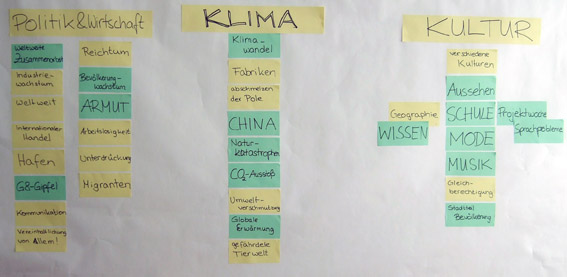 Politik & Wirtschaft
Weltweite
Zusammenarbeit
Industrie-
wachstum
Weltweit
Internationaler
Handel
Hafen
G8-Gipfel
Kommunikation
Vereinheitlichung
von Allem!
Reichtum
Bevölkerung-
wachstum
ARMUT
Arbeitslosigkeit
Unterdrückung
Migranten
KLIMA
Klima-
wandel
Fabriken
abschmelzen
der Pole
CHINA
Natur-
katastrophen
CO2-Ausstoß
Umwelt-
verschmutzung
Globale
Erwärmung
gefährdete
Tierwelt
KULTUR
verschiedene
Kulturen
Aussehen
Geographie
WISSEN
SCHULE
Projektwoche
Sprachprobleme
MODE
MUSIK
Gleich-
berechtigung
Bevölkerung